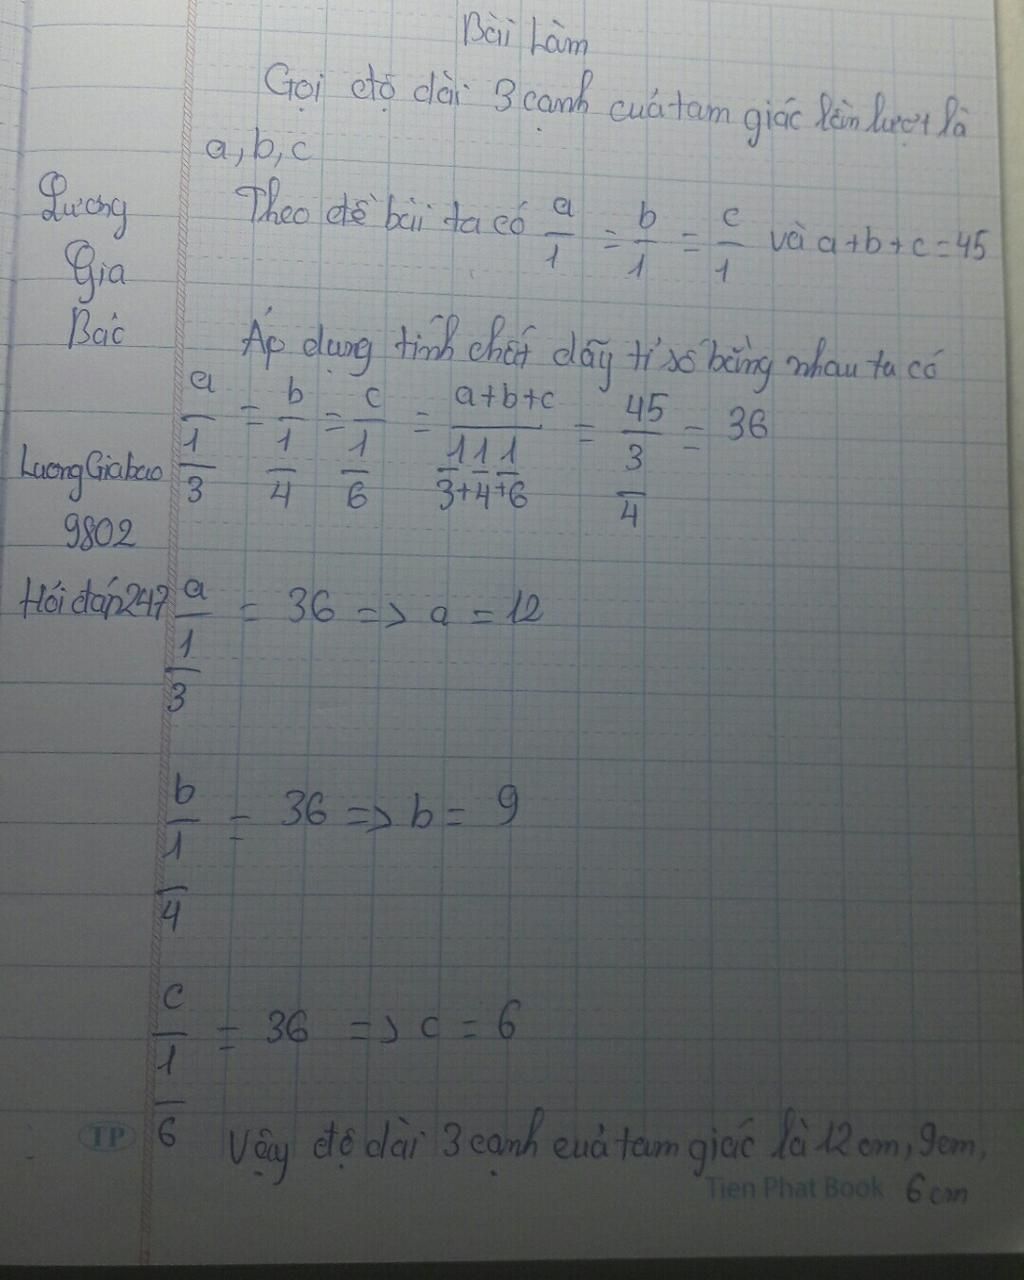 Bài Làm
Gọi độ dài 3 cạnh của tam giác lần lượt là
a, b, c
Lương
Gia
Bảo
Theo đề bài ta có a/1 = b/1 = c/1 và a+b+c=45
Áp dụng tính chất dãy tỉ số bằng nhau ta có
a/(1/3) = b/(1/4) = c/(1/6) = (a+b+c)/(1/3+1/4+1/6) = 45/(3/4) = 36
LuongGiabao
9802
Hỏi đáp247
a/(1/3) = 36 => a = 12
b/(1/4) = 36 => b = 9
c/(1/6) = 36 => c = 6
Vậy độ dài 3 cạnh của tam giác là 12 cm, 9cm,
6 cm
TP
Tien Phat Book